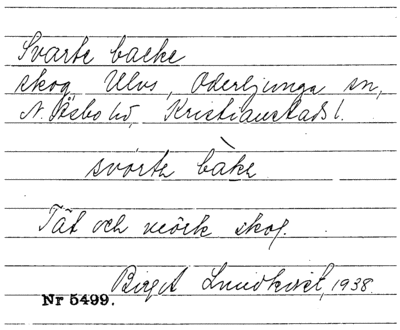 Svarte backe
skog Ulvs, Oderljunga sn,
N. Åsbo hd, Kristianstads l.
svòrta bàka
Tät och mörk skog.
Birgit Lundkvist, 1938.
Nr 5499.